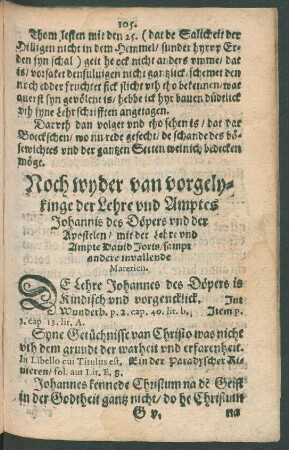 105.
Thom lesten mit den 25. (dat de Salicheit der
Hilligen nicht in dem Hemmel/ sunder hyryp Er-
den syn schal) geit he ock nicht anders vmme/ dat
is/ vorsaket densuluigen nicht gantzlick/ schemet den
noch edder fruchtet sick slicht vth tho bekennen/ wat
querst syn gevölent is/ hebbe ick hyr bauen düdlick
vth syne Lehr schrifften angetagen.
Daruth dan volget vnd tho sehen is/ dat dat
Boeckschen/ wo nu rede gesecht/ de schande des bö-
sewichtes vnd der gantzen Secten weinich bedecken
möge.
Noch wyder van vorgely-
kinge der Lehre vnd Amptes
Johannis des Döpers vnd der
Apostelen/ mit der Lehre vnd
Ampte Dauid Joris/ sampt
andere invallende
Materien.
DE Lehre Johannes des Döpers is
Kindisch vnd vorgencklick. Int
Wunderb. p. 2. cap. 40. lit. b. Item p.
3. cap. 13. lit. A.
Syne Getüchnisse van Christo was nicht
vth dem grunde der warheit vnd erfarenheit.
In Libello cui Titulus est, Ein der Paradyscher Ri-
uieren/ fol. aut Lit. E. 8.
Johannes kennede Christum na dē Geist
in der Godtheit gantz nicht/ do he Christum
G v. na